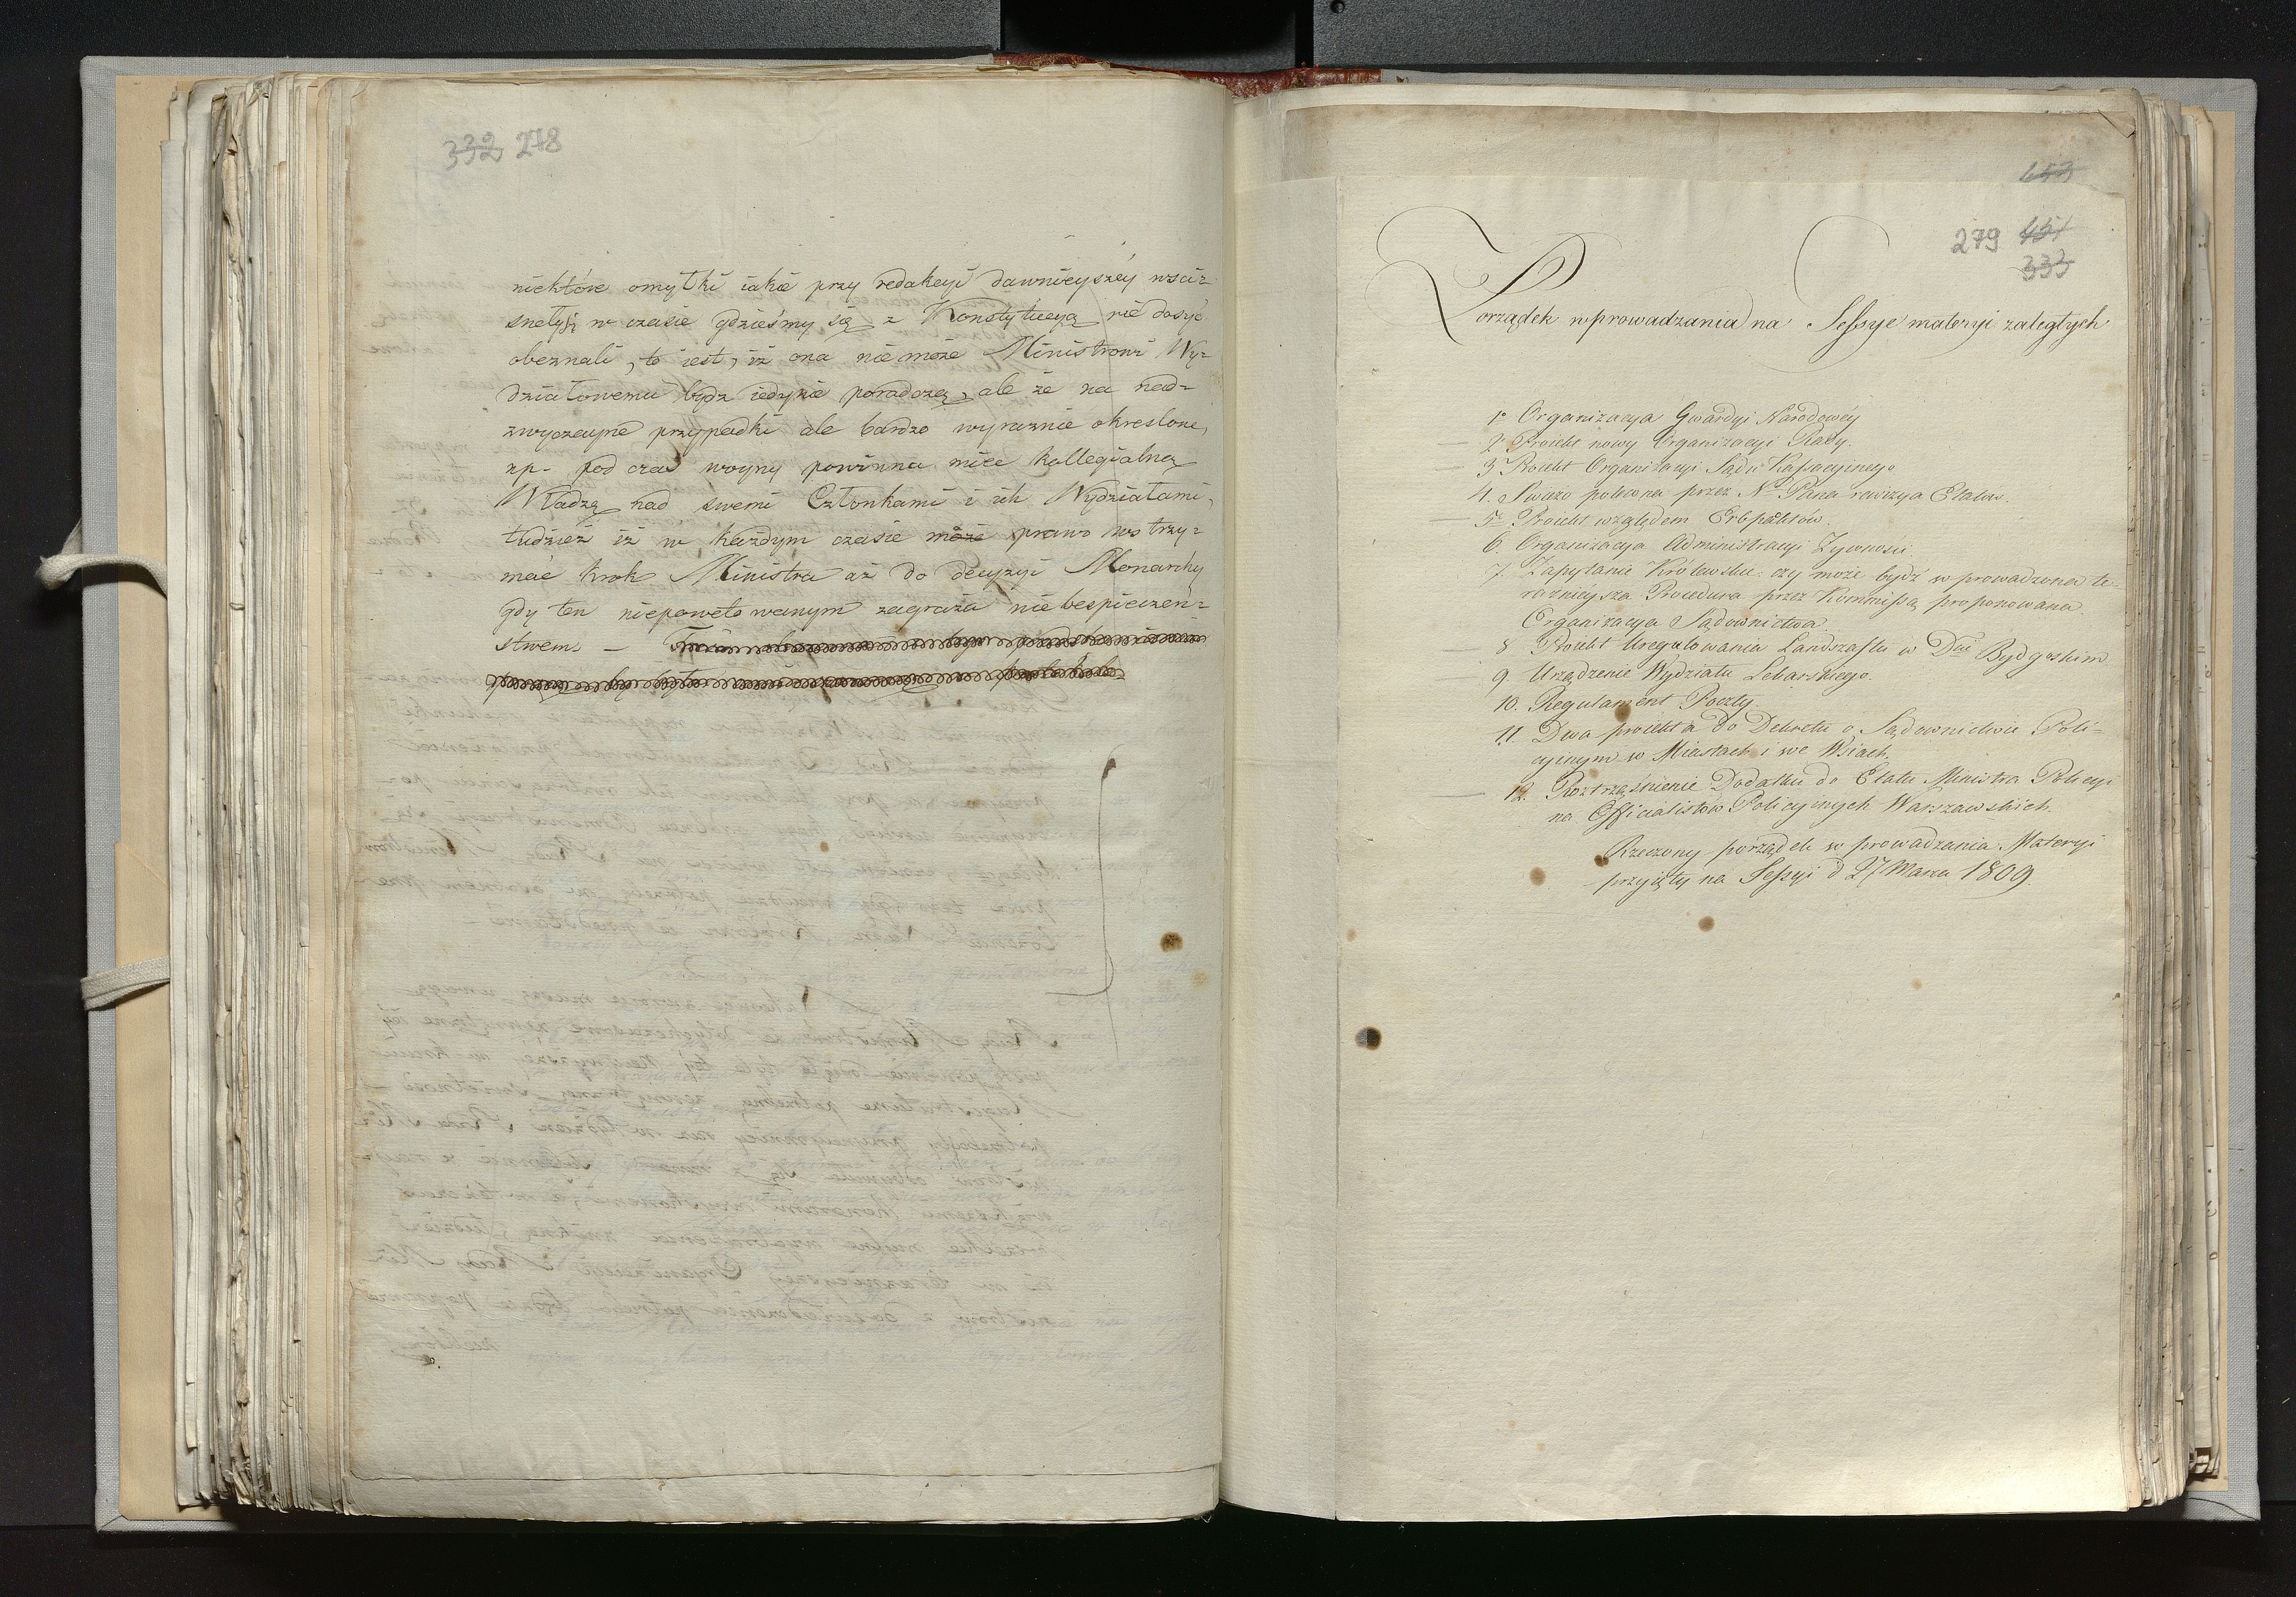 332 278
niektóre omyłki iakie przy redakcyi dawnieyszéy wści-
snęły się w czasie gdzieśmy się z Konstytucyą nie dosyć
obeznali, to iest, iż ona nie może Ministrowi Wy-
działowemu bydz iedynie poradczą, ale że na nad-
zwyczayne przypadki ale bardzo wyraznie okreslone,
np. pod czas woyny powinna mieć kollegialną
Władzę nad swemi Członkami i ich Wydziałami,
tudzież iż w każdym czasie może prawo wstrzy-
mać krok Ministra aż do decyzyi Monarchy
gdy ten niepowetowanym zagraża niebespieczeń-
stwem –
453
279 451
333
Porządek wprowadzania na Sessye materyi zaległych
1º Organizacya Gwardyi Narodowéy
2 Proiekt nowy Organizacyi Rady.
3 Proiekt Organizacyi Sądu Kassacyinego
4. Swieżo polecona przez N. Pana rewizya Etatów.
5º Proiekt względem Erbpaktów.
6. Organizacya Administracyi Żywnosci.
7. Zapytanie Królewskie: czy może bydź wprowadzona te-
raznieysza Procedura przez Kommissą proponowana
Organizacya Sądownictwa.
8 Proiekt Uregulowania Landszaftu w Dcie Bydgoskim
9. Urządzenie Wydziału Lekarskiego.
10. Regulament Poczty.
11. Dwa proiekta do Dekretu o Sądownictwie Poli-
cyinym w Miastach i we Wsiach.
12. Roztrząśnienie Dodatku do Etatu Ministra Policyi
na Officialistów Policyinych Warszawskich
Rzeczony porządek wprowadzania Materyi
przyięty na Sessyi d 27 Marca 1809.